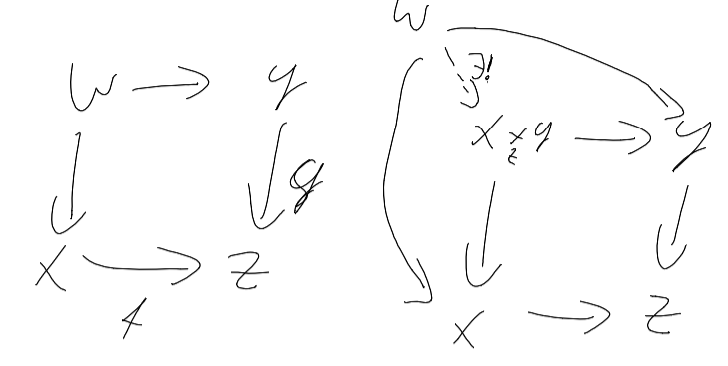 W → y
g
X → Z
f
W
∃!
X ×_Z y → y
X → Z